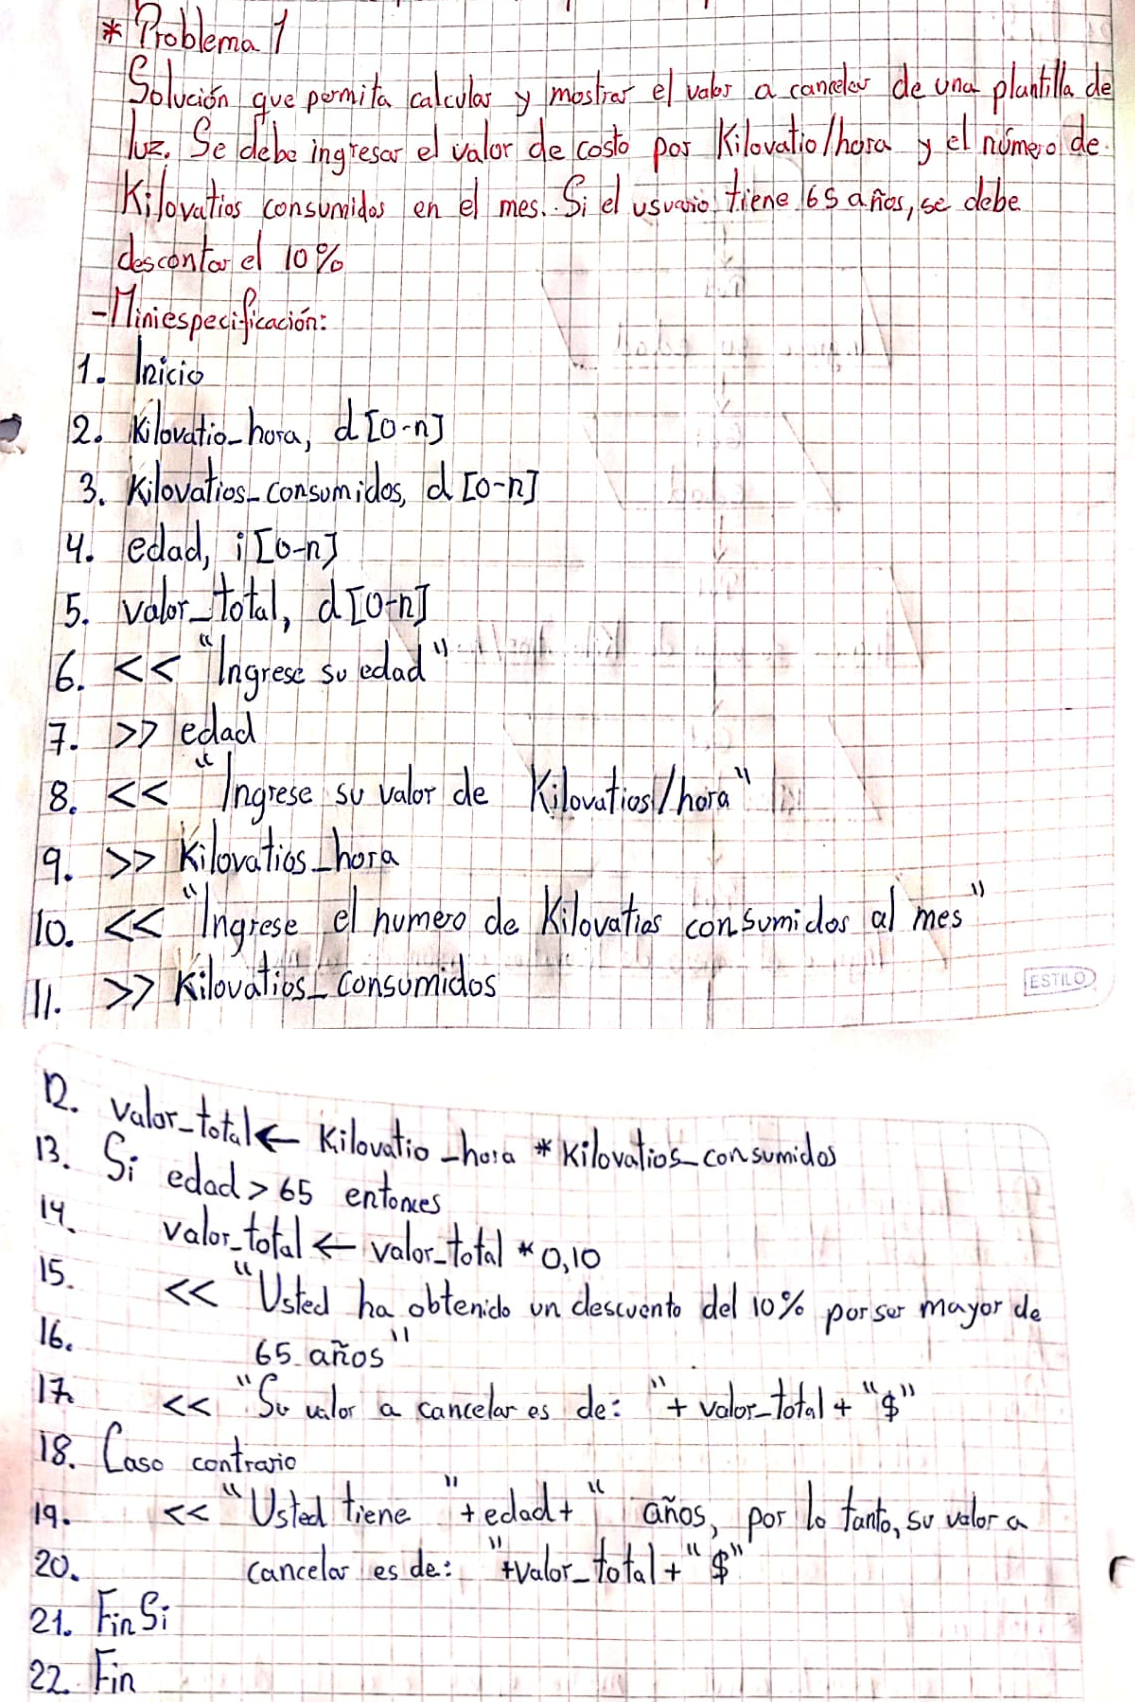 * Problema 1
Solución que permita calcular y mostrar el valor a cancelar de una plantilla de
luz. Se debe ingresar el valor de costo por Kilovatio/hora y el número de
Kilovatios consumidos en el mes. Si el usuario tiene 65 años, se debe
descontar el 10%
- Miniespecificación:
1. Inicio
2. Kilovatio_hora, d [0-n]
3. Kilovatios_consumidos, d [0-n]
4. edad, i [0-n]
5. valor_total, d [0-n]
6. << "Ingrese su edad"
7. >> edad
8. << "Ingrese su valor de Kilovatios/hora"
9. >> Kilovatios_hora
10. << "Ingrese el numero de Kilovatios consumidos al mes"
11. >> Kilovatios_consumidos
ESTILO
12. valor_total ← Kilovatio_hora * Kilovatios_consumidos
13. Si edad > 65 entonces
14. valor_total ← valor_total * 0,10
15. << "Usted ha obtenido un descuento del 10% por ser mayor de
16. 65 años"
17. << "Su valor a cancelar es de: "+ valor_total + "$"
18. Caso contrario
19. << "Usted tiene "+edad+" años, por lo tanto, su valor a
20. cancelar es de: "+valor_total+"$"
21. Fin Si
22. Fin